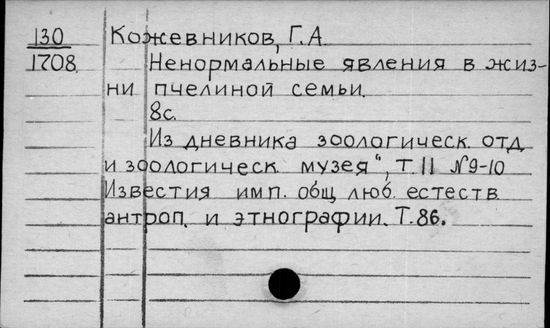 130 Кожевников, Г.А.
1708. Ненормальные явления в жиз-
ни пчелиной семьи.
8с.
Из дневника зоологическ. отд.
и зоологическ. музея", т II №9-10
Известия имп. общ. люб. естеств.
антроп. и этнографии. Т.86.